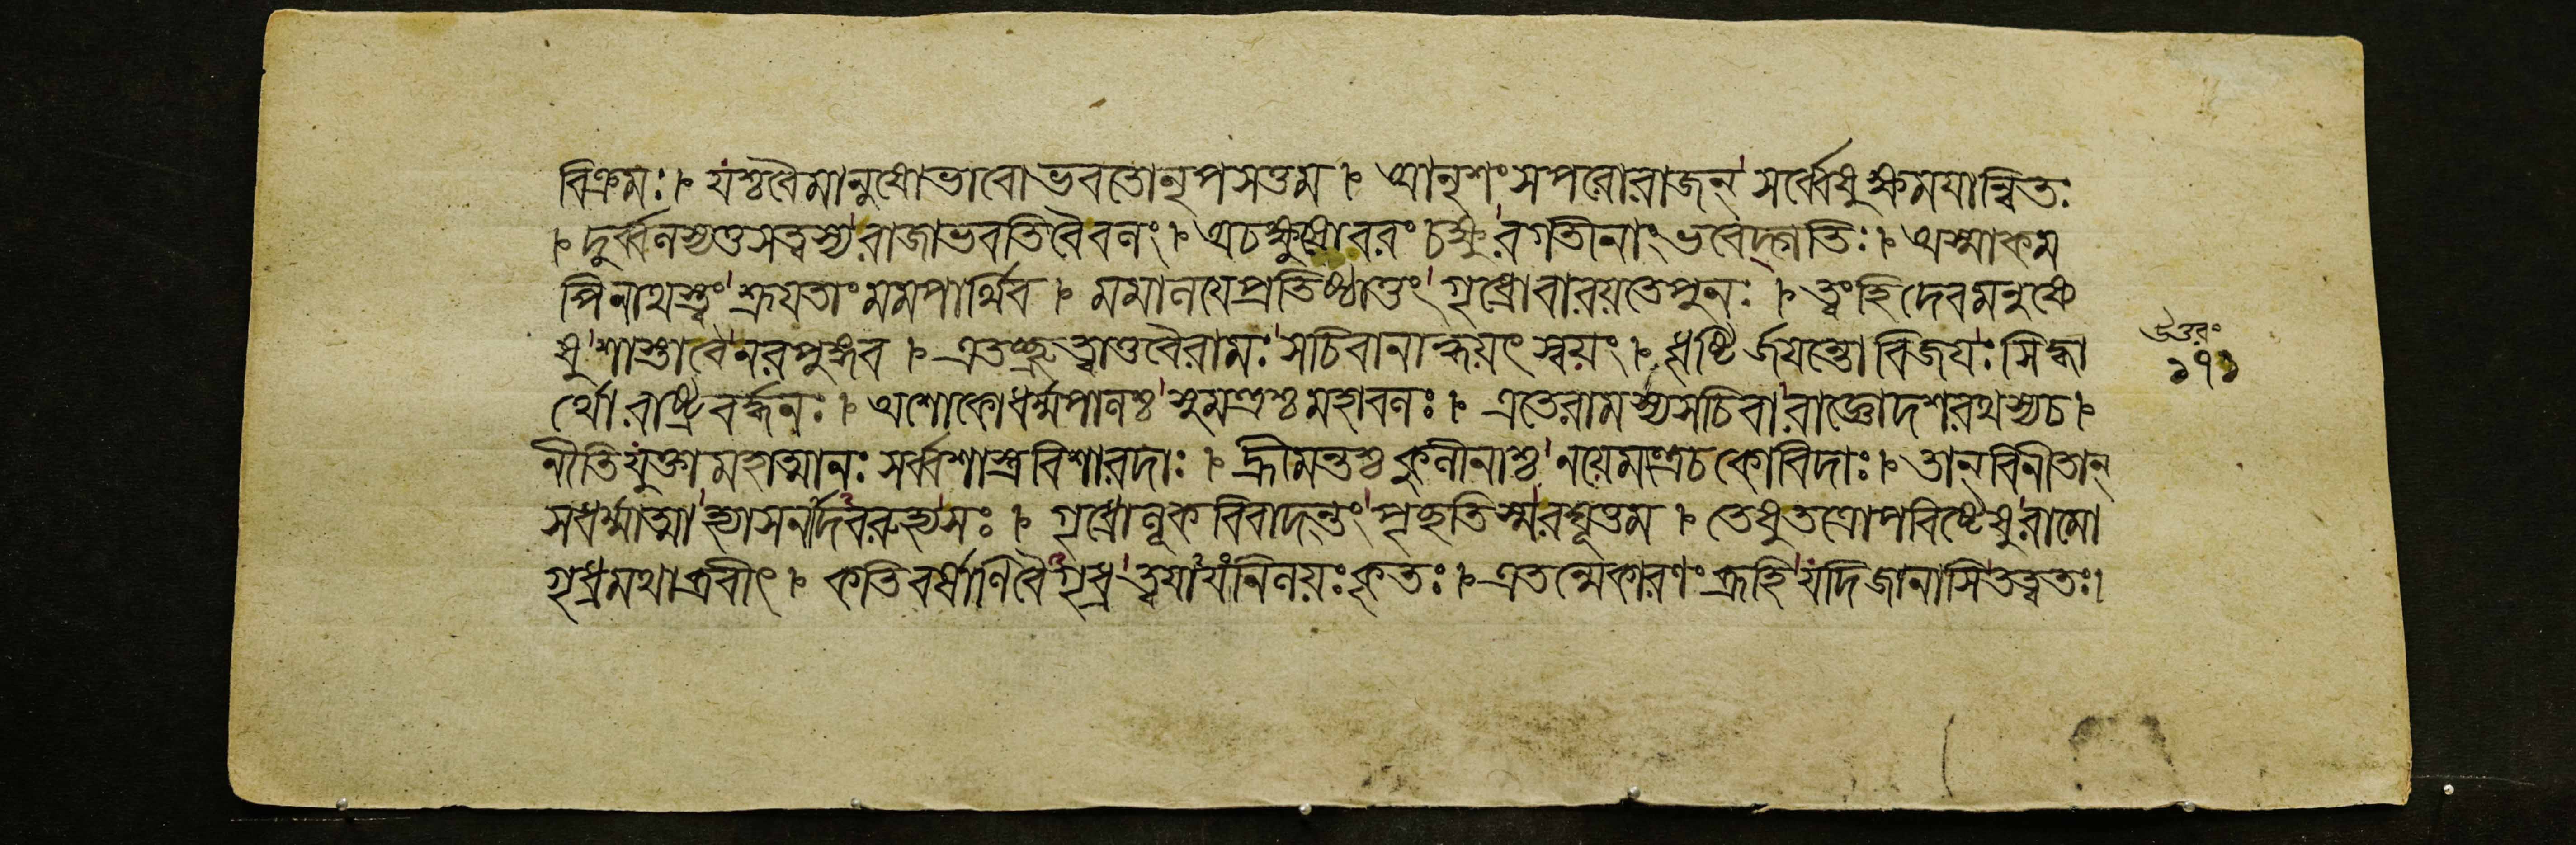 বিক্রমঃ। যশ্চবৈমানুষোভাবোভবতোনৃপসত্তম। আনৃশংসপরোরাজন্সর্ব্বেষুক্ষময়ান্বিতঃ
। দুর্ব্বলস্যতুসত্বস্যরাজাভবতিবৈবলং। অচক্ষুষোবরংচক্ষুরগতীনাংভবেদ্গতিঃ। অস্মাকম
পিনাথস্ত্বংশ্রূয়তাংমমপার্থিব। মমালয়েপ্রতিষ্ঠাতুংগৃধ্রোবারয়তেপুনঃ। ত্বংহিদেবমনুষ্যে
ষুশাস্তাবৈনরপুঙ্গব। এতচ্ছ্রুত্বাতুবৈরামঃসচিবানাহ্বয়ৎস্বয়ং। ধৃষ্টির্জয়ন্তোবিজয়ঃসিদ্ধা
র্থোরাষ্ট্রবর্দ্ধনঃ। অশোকোধর্ম্মপালশ্চসুমন্ত্রশ্চমহাবলঃ। এতেরামস্যসচিবারাজ্ঞোদশরথস্যচ।
নীতিযুক্তামহাত্মানঃসর্ব্বশাস্ত্রবিশারদাঃ। হ্রীমন্তশ্চকুলীনাশ্চনয়েমন্ত্রেচকোবিদাঃ। তান্বিনীতান্
সধর্ম্মাত্মাহ্যাসনাদবরুহ্যসঃ। গৃধ্রোলূকবিবাদন্তংপৃচ্ছতিস্মরঘূত্তম। তেষুতত্রোপবিষ্টেষুরামো
গৃধ্রমথাব্রবীৎ। কতিবর্ষাণিবৈগৃধ্রত্বয়ায়ংনিলয়ঃকৃতঃ। এতন্মেকারণংব্রূহিযদিজানাসিতত্ত্বতঃ।
উত্তরং
১৭১